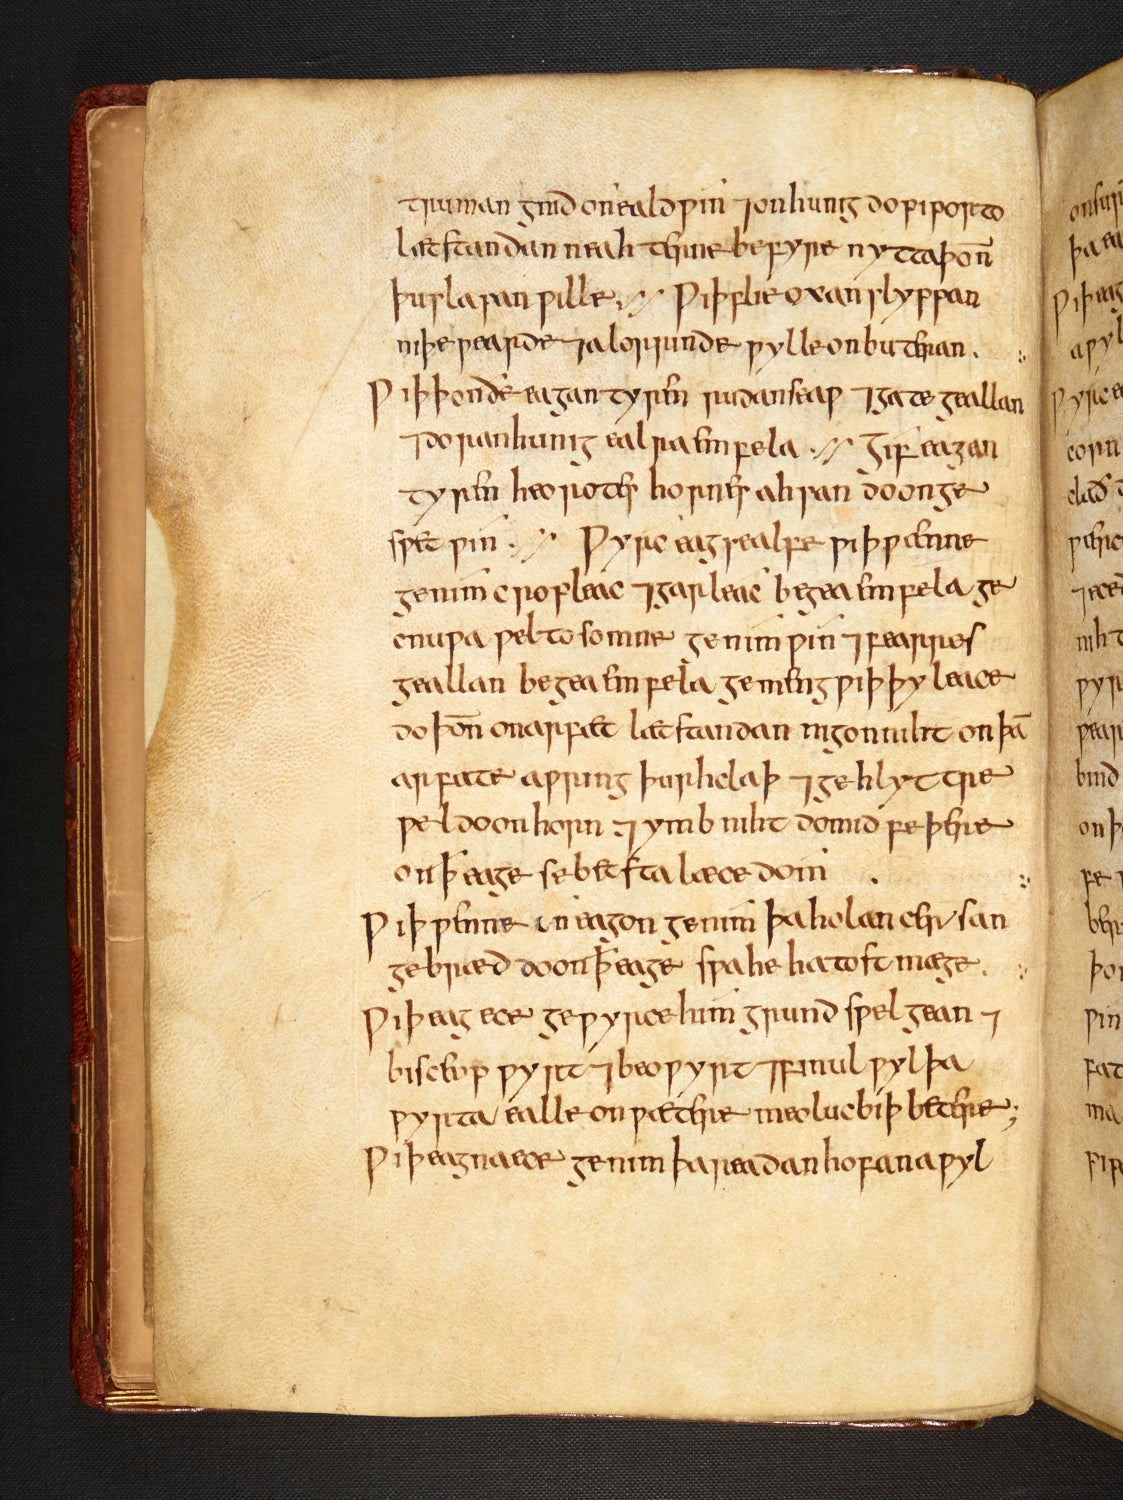 truman gnid on eald ƿin ⁊ on hunig do piportо
læt standan neahterne be fyre nytta þoñ
þus lafan ƿille. Ƿiþ þe oxan slyppan
niþeƿearde ⁊ alorrinde ƿylle on buteran.
Ƿiþ þon ðe eagan tyren rudan seaƿ ⁊ gate geallan
⁊ doran hunig ealra em fela. Gif eagan
tyren heorotes hornes ahsan do on ge
sƿet ƿin. Ƿyrc eagsealfe ƿiþ ƿænne
genim cropleac ⁊ garleac begea em fela ge
cnuƿa ƿel tosomne genim ƿin ⁊ fearres
geallan begea em fela gemeng ƿiþ þy leace
do þoñ on arfæt læt standan nigon niht on þā
arfate aƿring þurh claþ ⁊ gehlyttre
ƿel do on horn ⁊ ymb niht do mid feþere
on ꝥ eage se betsta læcedom
Ƿiþ ƿenne on eagon genim þa holan cersan
gebræd do on ꝥ eage sƿa he hatost mæge.
Ƿiþ eagece geƿyrce him grundsƿelgean ⁊
bisceopƿyrt ⁊ beoƿyrt ⁊ finul ƿyl þa
ƿyrta ealle on ƿætere meoluc biþ betere;
Ƿiþ eagna ece genim þa readan hofan aƿyl